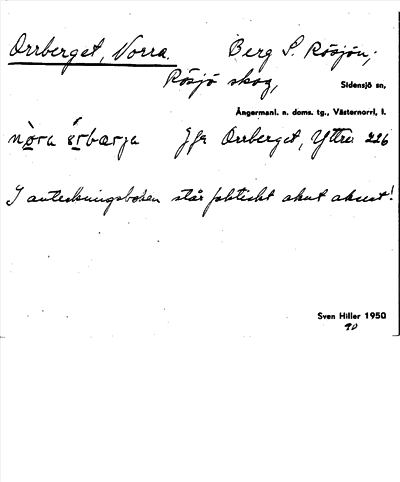 Orrberget, Norra. Berg S. Rösjön,
Rösjö skog,
Sidensjö sn,
Ångermanl. n. doms. tg., Västernorrl. l.
nò̲ra ér̲bærja Jfr Orrberget, Yttre 226
I anteckningsboken står faktiskt akut akcent!
Sven Hiller 1950
90